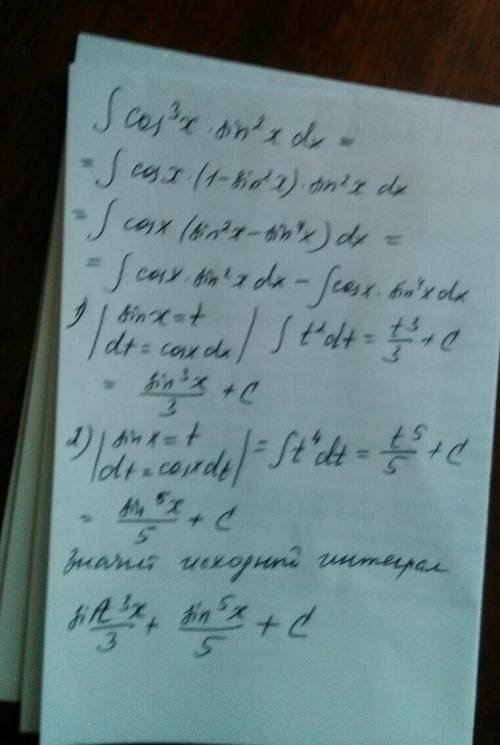 ∫ cos³x · sin²x dx =
= ∫ cosx · (1 - sin²x) · sin²x dx
= ∫ cosx (sin²x - sin⁴x) dx =
= ∫ cosx · sin²x dx - ∫ cosx · sin⁴x dx
1) | sinx = t
| dt = cosx dx | ∫ t²dt = t³/3 + C
= sin³x/3 + C
2) | sinx = t
| dt = cosx dt | = ∫ t⁴dt = t⁵/5 + C
= sin⁵x/5 + C
Значит исходный интеграл
sin³x/3 + sin⁵x/5 + C